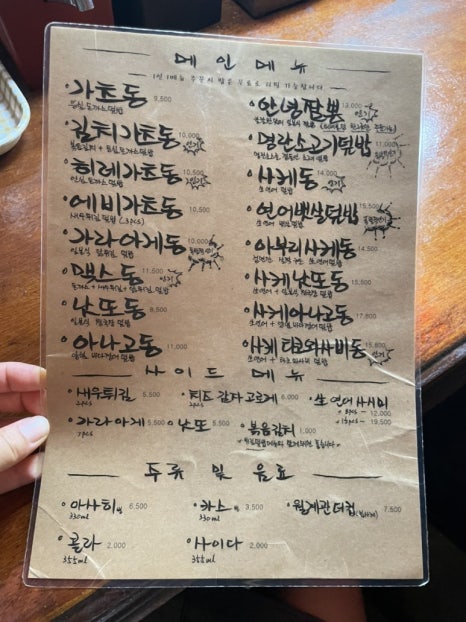 메인메뉴
1인 1메뉴 주문시 밥은 무료로 리필 가능합니다
가츠동 9,500
등심 돈까스 덮밥
김치가츠동 10,000
볶은김치 + 등심 돈까스 덮밥
인기
히레가츠동 10,500
안심 돈까스 덮밥
인기
에비가츠동 10,500
새우튀김 덮밥 (3pcs)
가라아게동 10,000
일본식 닭튀김 덮밥
믹스동 11,500
돈까스 + 새우튀김 + 닭튀김 덮밥
인기
낫또동 8,500
일본식 청국장 덮밥
아나고동 11,000
양념 바다장어 덮밥
안녕짬뽕 13,000
인기
명란소고기덮밥 11,000
사케동 14,000
生연어 덮밥
인기
연어뱃살덮밥 15,500
生연어 뱃살 덮밥
아부리사케동 14,500
사케낫또동 15,800
生연어 + 일본식 청국장 덮밥
사케아나고동 17,800
生연어 + 양념 바다장어 덮밥
사케타코와사비동
生연어 + 타코와사비 덮밥
인기
사이드 메뉴
새우튀김 5,500
2pcs
치즈감자고로케 6,000
2pcs
生연어사시미
8pcs - 12,000
15pcs - 19,500
가라아게 5,500
7pcs
낫또 5,500
볶음김치 1,000
주류 및 음료
아사히 병 6,500
330ml
카스 병 3,500
330ml
월계관더컵 7,500
콜라 2,000
355ml
사이다 2,000
355ml